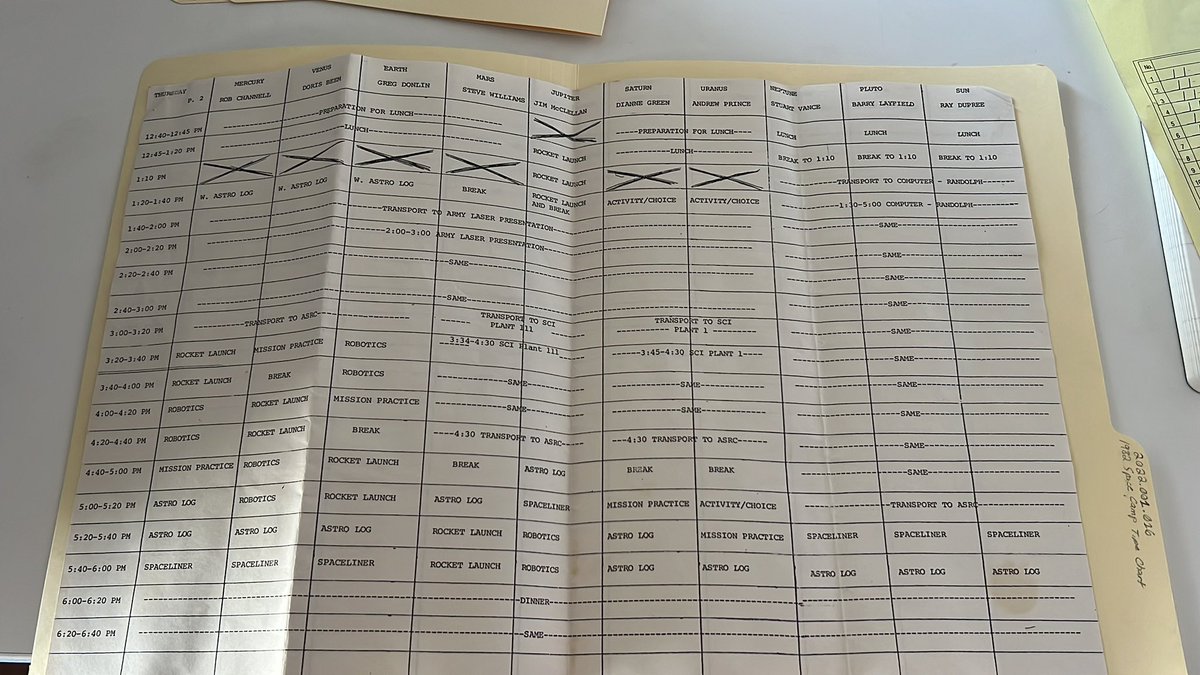 THURSDAY P. 2
MERCURY ROB CHANNELL
VENUS DORIS BEEM
EARTH GREG DONLIN
MARS STEVE WILLIAMS
JUPITER JIM McCLELLAN
SATURN DIANNE GREEN
URANUS ANDREW PRINCE
NEPTUNE STUART VANCE
PLUTO BARRY LAYFIELD
SUN RAY DUPREE
12:40-12:45 PM PREPARATION FOR LUNCH PREPARATION FOR LUNCH LUNCH LUNCH LUNCH
12:45-1:20 PM LUNCH ROCKET LAUNCH LUNCH BREAK TO 1:10 BREAK TO 1:10 BREAK TO 1:10
1:10 PM ROCKET LAUNCH TRANSPORT TO COMPUTER - RANDOLPH
1:20-1:40 PM W. ASTRO LOG W. ASTRO LOG W. ASTRO LOG BREAK ROCKET LAUNCH AND BREAK ACTIVITY/CHOICE ACTIVITY/CHOICE 1:30-5:00 COMPUTER - RANDOLPH
1:40-2:00 PM TRANSPORT TO ARMY LASER PRESENTATION SAME
2:00-2:20 PM 2:00-3:00 ARMY LASER PRESENTATION SAME
2:20-2:40 PM SAME SAME
2:40-3:00 PM SAME SAME
3:00-3:20 PM TRANSPORT TO ASRC TRANSPORT TO SCI PLANT 111 TRANSPORT TO SCI PLANT 1 SAME
3:20-3:40 PM ROCKET LAUNCH MISSION PRACTICE ROBOTICS 3:34-4:30 SCI Plant 111 3:45-4:30 SCI PLANT 1 SAME
3:40-4:00 PM ROCKET LAUNCH BREAK ROBOTICS SAME SAME SAME
4:00-4:20 PM ROBOTICS ROCKET LAUNCH MISSION PRACTICE SAME SAME SAME
4:20-4:40 PM ROBOTICS ROCKET LAUNCH BREAK 4:30 TRANSPORT TO ASRC 4:30 TRANSPORT TO ASRC SAME
4:40-5:00 PM MISSION PRACTICE ROBOTICS ROCKET LAUNCH BREAK ASTRO LOG BREAK BREAK SAME
5:00-5:20 PM ASTRO LOG ROBOTICS ROCKET LAUNCH ASTRO LOG SPACELINER MISSION PRACTICE ACTIVITY/CHOICE TRANSPORT TO ASRC
5:20-5:40 PM ASTRO LOG ASTRO LOG ASTRO LOG ROCKET LAUNCH ROBOTICS ASTRO LOG MISSION PRACTICE SPACELINER SPACELINER SPACELINER
5:40-6:00 PM SPACELINER SPACELINER SPACELINER ROCKET LAUNCH ROBOTICS ASTRO LOG ASTRO LOG ASTRO LOG ASTRO LOG ASTRO LOG
6:00-6:20 PM DINNER
6:20-6:40 PM SAME
2022.001.016
1982 Space Camp Time Chart